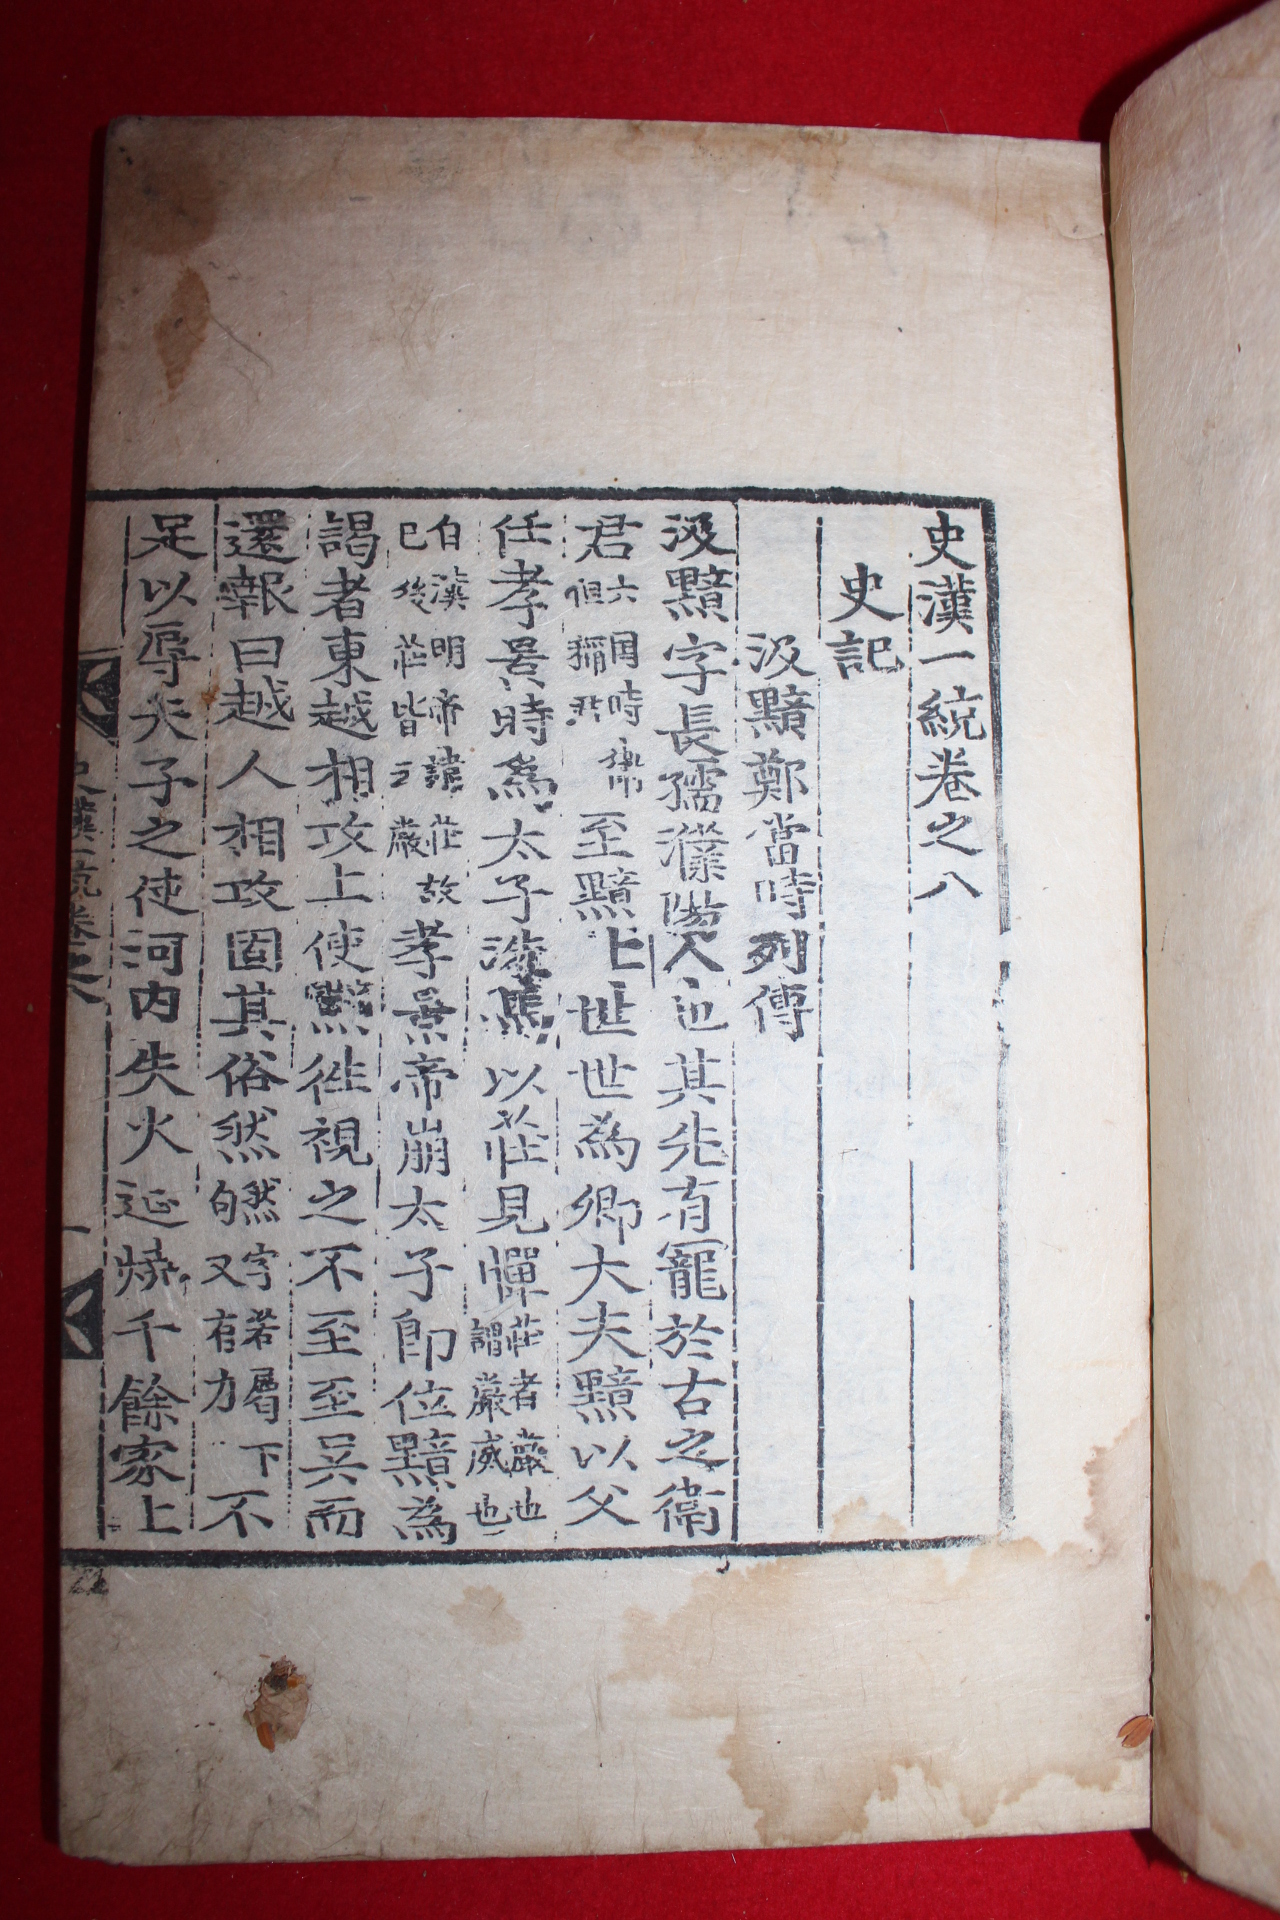 史漢一統卷之八
史記
汲黯鄭當時列傳
汲黯字長孺濮陽人也其先有寵於古之衛
君六國時衛但稱君至黯七世世為卿大夫黯以父
任孝景時爲太子洗馬以莊見憚莊者嚴也謂嚴威也
自漢明帝諱莊故已後莊皆云嚴孝景帝崩太子即位黯為
謁者東越相攻上使黯徃視之不至至吳而
還報曰越人相攻固其俗然然字若屬下句又有力不
足以辱天子之使河内失火延燒千餘家上
史漢一統卷之八
一